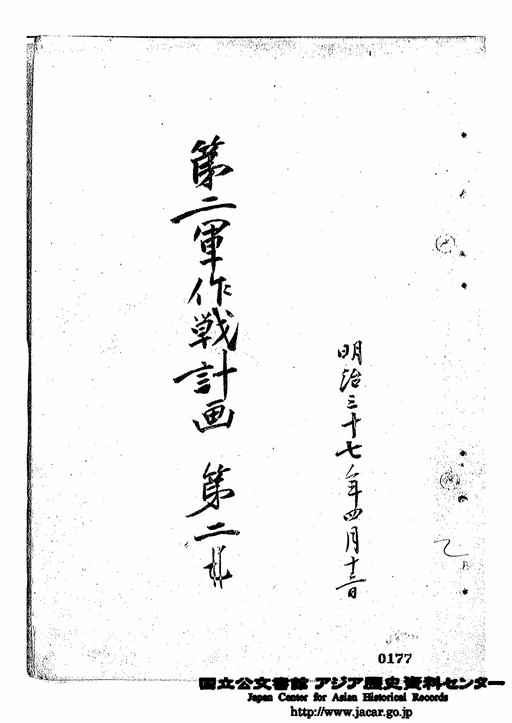 明治三十七年四月十三日
第二軍作戦計画 第二
0177
国立公文書館 アジア歴史資料センター
Japan Center for Asian Historical Records
http://www.jacar.go.jp